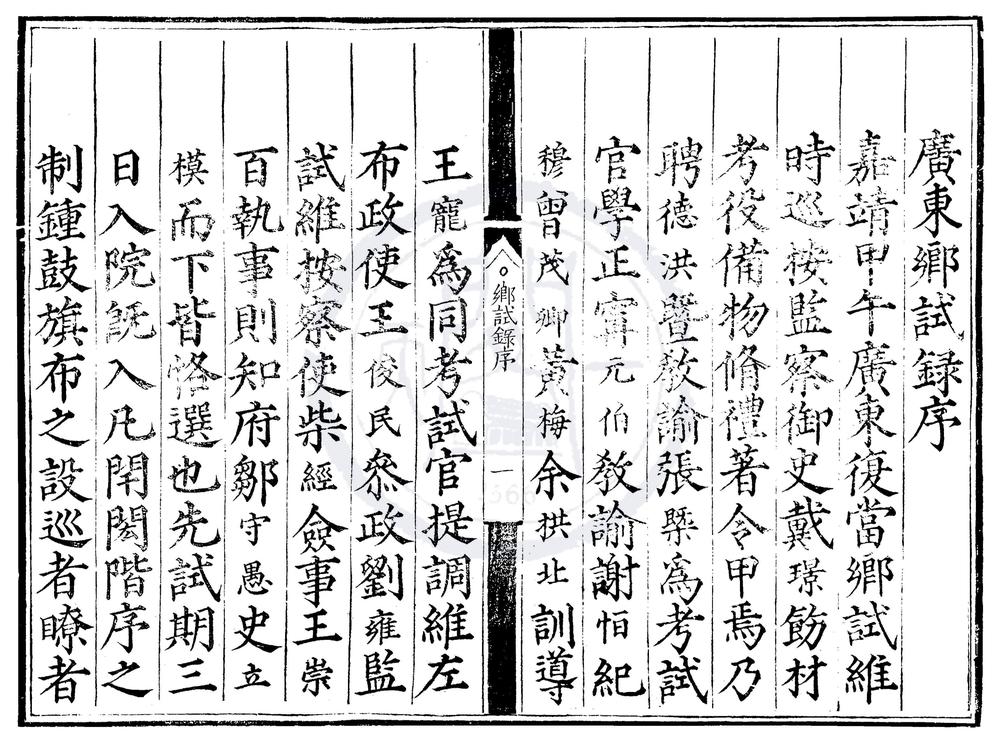 廣東鄉試録序
嘉靖甲午廣東復當鄉試維
時巡按監察御史戴璟飭材
考役備物脩禮著令甲焉乃
聘德洪曁敎諭張槩爲考試
官學正甯元伯敎諭謝恒紀
穆曾茂卿黃梅余拱北訓導
鄉試錄序
一
王寵爲同考試官提調維左
布政使王俊民叅政劉雍監
試維按察使柴經僉事王崇
百執事則知府鄒守愚史立
模而下皆恪選也先試期三
日入院旣入凡閈閎階序之
制鍾鼓旗布之設巡者瞭者